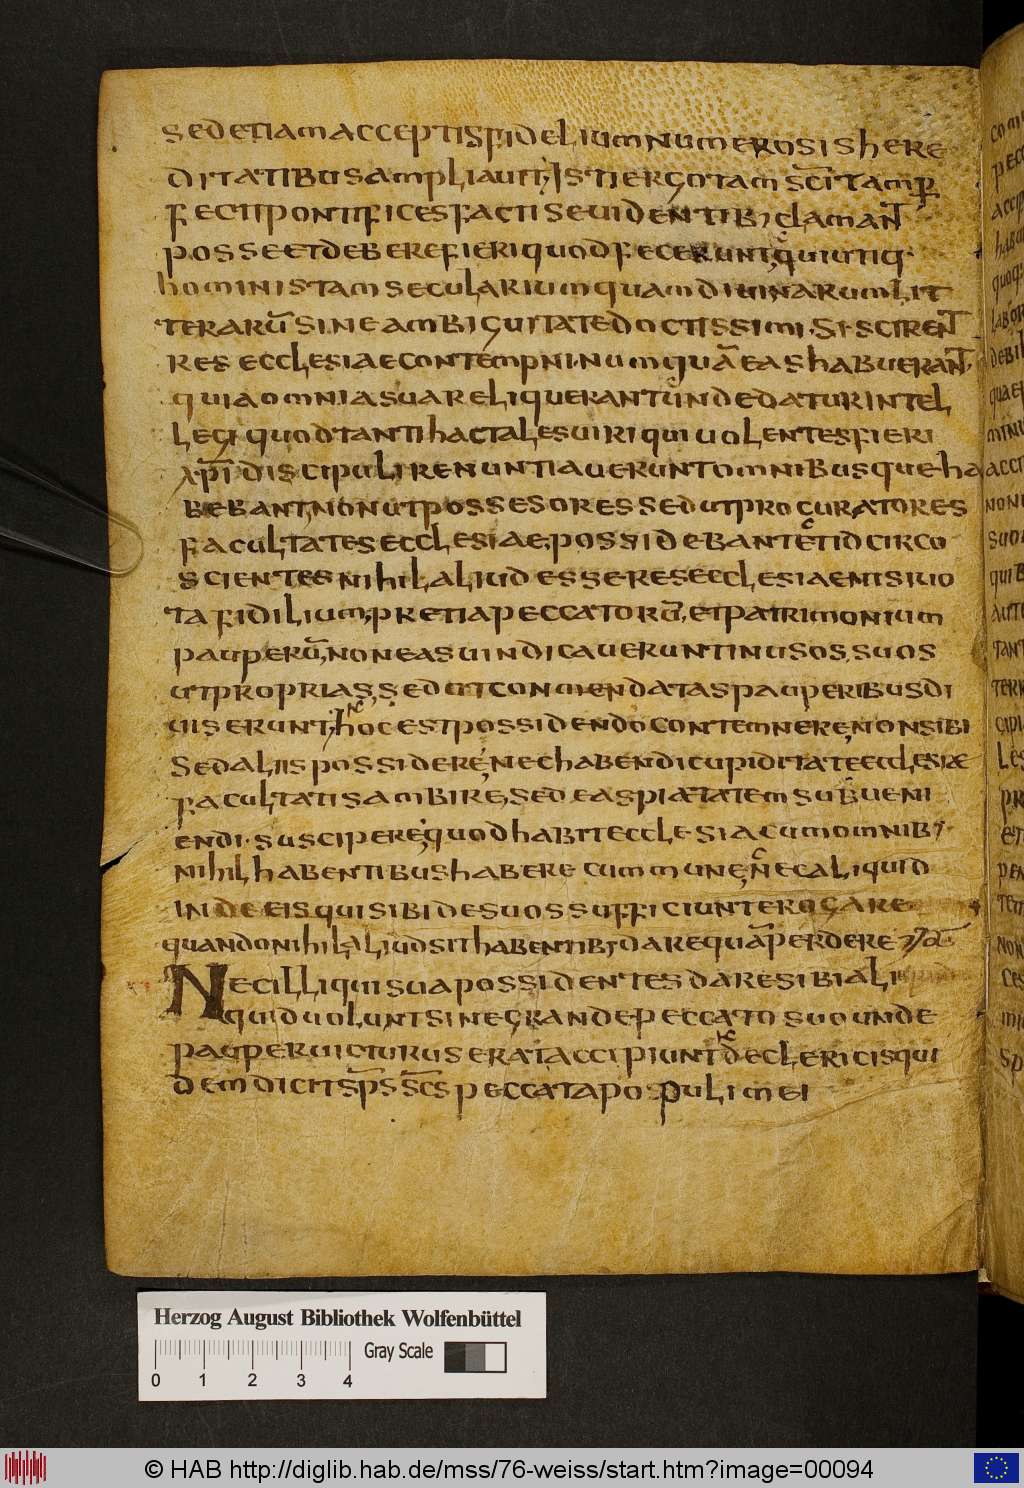 sedetiamacceptisfideliumnumerosishere
ditatibusampliavit; Istiergotamsc̄itamꝑ
fectipontificesfactisevidentib; clamanт̄
posseetdeberefieriquodfecerunt, quiutiq·
hominestamseculariumquamdivinarumlit
terarūsineambiguitatedoctissimi. Siscirenт̄
resecclesiaecontempni. numquāeashabuerant̄.
quiaomniasuareliquerantundedaturintel
legi quodtantihactalesuiriquivolentesfieri
xp̄idiscipulirenuntiaveruntomnibusqueha
bebant, nonutpossesoressedutprocuratores
facultatesecclesiae, possidebantetidcirco
scientesnihilaliudesseresecclesiaenisivo
tafidilium, pretiapeccatorū, etpatrimonium
pauperū, noneasvindicaveruntinusossuos
utproprias, sedutcommendataspauperibusdi
viserunt, hocestpossidendocontemnere, nonsibi
sedaliispossidere, nechabendicupiditateecclesiæ
facultatisambire, sedeaspiætatemsubveni
endi. suscipere, quodhabitecclesiacumomnib;
nihilhabentibushaberecummune, necaliquid
indeeisquisibidesuossufficiunterogare
quandonihilaliudsithabentib; darequāperdere
Necilliquisuapossidentesdaresibiali
quidvoluntsinegrandepeccatosuounde
pauperuicturuserat, accipiunt declericisqui
demdicitsp̄s sc̄s peccatapopulimei
Herzog August Bibliothek Wolfenbüttel
Gray Scale
0 1 2 3 4
© HAB http://diglib.hab.de/mss/76-weiss/start.htm?image=00094